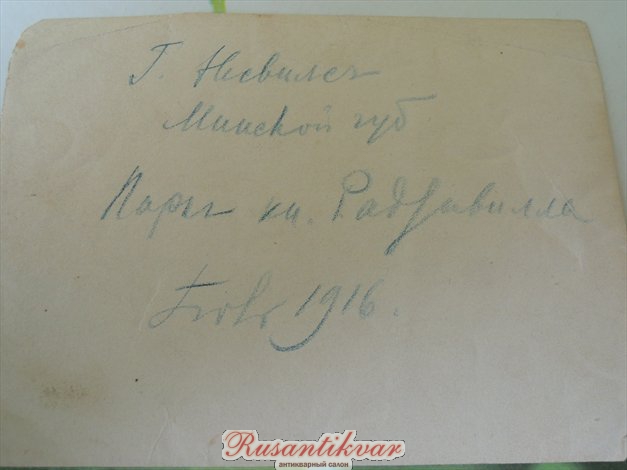 Г. Несвижъ
Минской губ
Паркъ кн. Радзивилла
1916.
Rusantikvar
антикварный салон